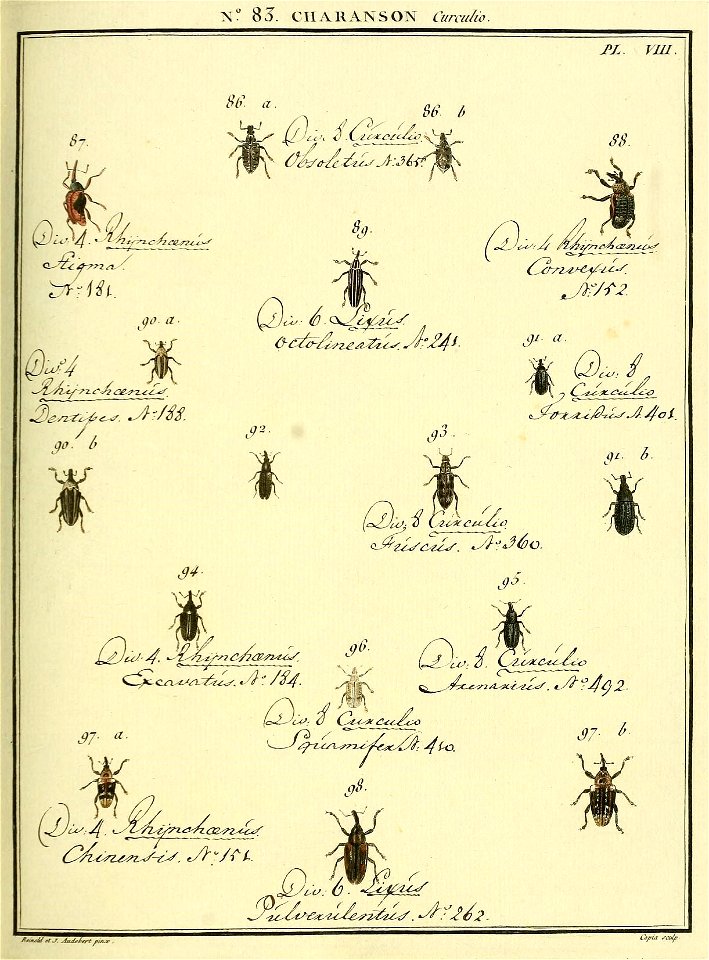 Nº 83. CHARANSON Curculio.
PL. VIII.
86 a.
86 b
Div. 8 Curculio
Obsoletus Nº 365.
87.
Div. 4. Rhijnchænus
Stigma.
Nº 181.
88.
Div. 4 Rhijnchænus
Convexus.
Nº 152.
89.
Div. 6. Lixus.
octolineatus. Nº 241.
90. a.
Div. 4
Rhijnchænus.
Dentipes. Nº 188.
91. a.
Div. 8
Curculio
Torridus N. 401.
90. b
92.
93.
Div. 8 Curculio
Fuscus. Nº 360.
91. b.
94.
Div. 4. Rhijnchænus.
Excavatus. Nº 184.
95.
Div. 8. Curculio
Arenarius. Nº 492.
96.
Div. 8 Curculio
Squamifer N. 410.
97. a.
Div. 4. Rhijnchænus
Chinensis. Nº 151.
97. b.
98.
Div. 6. Lixus
Pulverulentus. Nº 262.
Reinold et J. Audebert pinx.
Copia sculp.